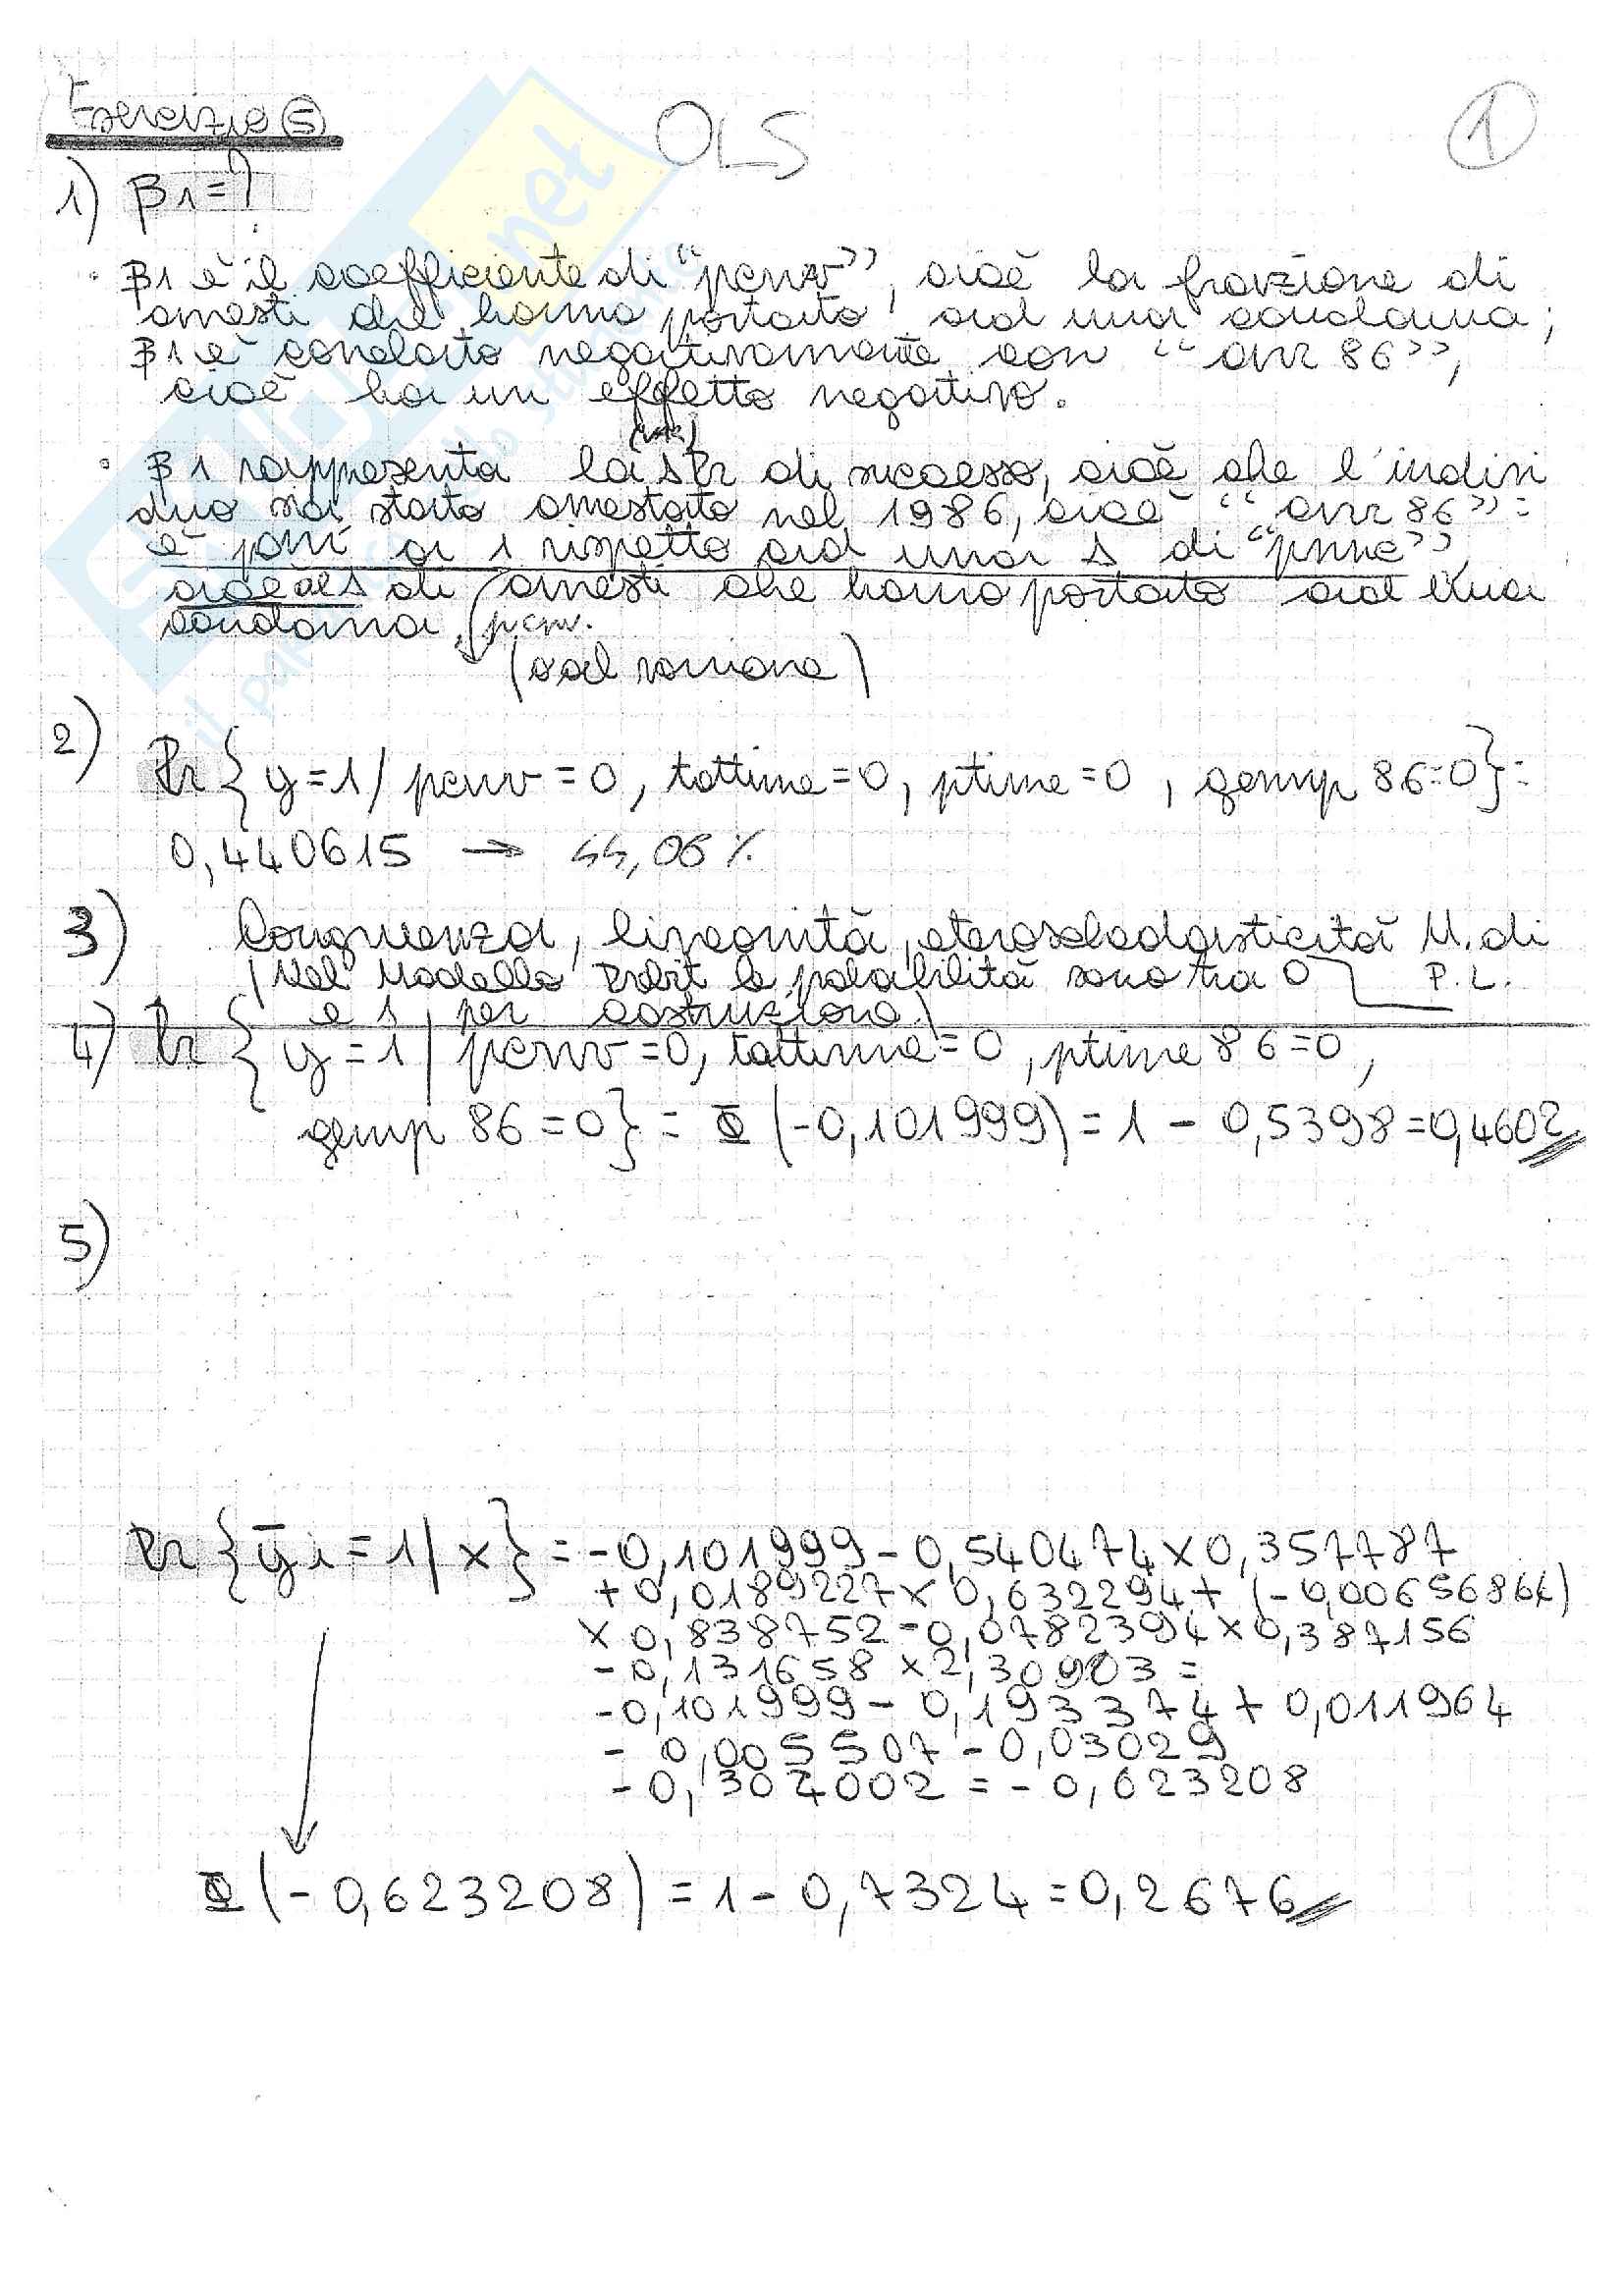 Esercizio 5
OLS
1
1) β1=?
· β1 è il coefficiente di "pcnv", cioè la frazione di
arresti che hanno portato ad una condanna;
β1 è correlato negativamente con "arr 86",
cioè ha un effetto negativo.
· β1 rappresenta la Δ Pr di successo, cioè che l'indivi
duo sia stato arrestato nel 1986, cioè "arr 86" =
è pari a 1 rispetto ad una Δ di
cioè al Δ di arresti che hanno portato ad una
condanna. pcnv.
2) Pr { y=1 / pcnv = 0, tottime=0, ptime=0, qemp 86=0} =
0,440615 → 44,06 %
3) Congruenza, linearità, eteroschedasticità M. di
(Nel Modello Probit le probabilità sono tra 0 P.L.
e 1 per costruzione.)
4) Pr { y=1 | pcnv=0, tottime=0, ptime 86=0,
qemp 86=0} = Φ (-0,101999) = 1 - 0,5398 = 0,4602
5)
Pr { ȳi = 1 / x } = -0,101999 - 0,540474 x 0,357787
+ 0,0189227 x 0,632294 + (-0,00656864)
x 0,838752 - 0,0782394 x 0,387156
- 0,131658 x 2,30903 =
- 0,101999 - 0,193374 + 0,011964
- 0,005507 - 0,03029
- 0,304002 = - 0,623208
Φ (- 0,623208) = 1 - 0,7324 = 0,2676
.net